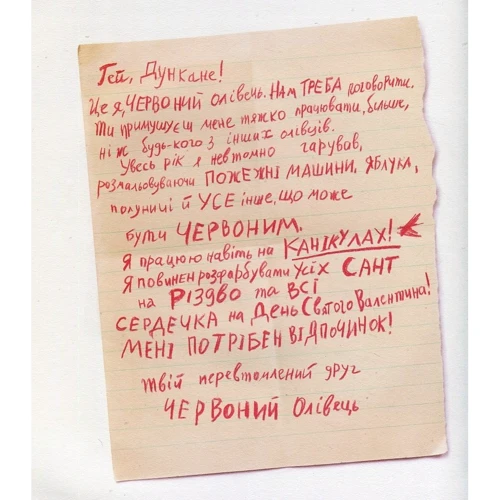 Гей, Дункане!
Це я, ЧЕРВОНИЙ ОЛІВЕЦЬ. НАМ ТРЕБА поговорити.
Ти примушуєш мене тяжко працювати, більше,
ніж будь-кого з інших олівців.
Увесь рік я невтомно гарував,
розмальовуючи ПОЖЕЖНІ МАШИНИ, ЯБЛУКА,
полуниці й УСЕ інше, що може
бути ЧЕРВОНИМ.
Я працюю навіть на КАНІКУЛАХ!
Я повинен розфарбувати усіх САНТ
на РІЗДВО та ВСІ
СЕРДЕЧКА на ДЕНЬ Святого Валентина!
МЕНІ ПОТРІБЕН ВІДПОЧИНОК!
Твій перевтомлений друг
ЧЕРВОНИЙ Олівець